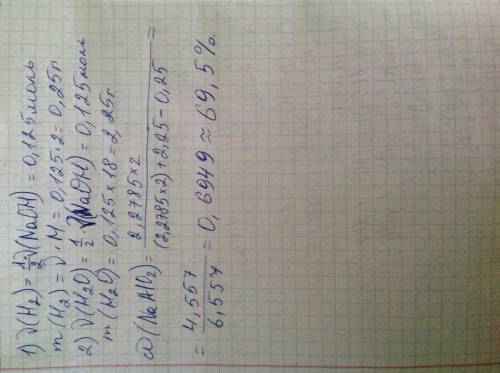 1) ν(H₂) = ½ν(NaOH) = 0,125 моль
m(H₂) = ν·M = 0,125·2 = 0,25г
2) ν(H₂O) = ½·ν(NaOH) = 0,125 моль
m(H₂O) = 0,125×18 = 2,25г
ω(NaAlO₂) = 2,2785×2 / (2,2785×2)+2,25-0,25 =
= 4,557 / 6,557 = 0,6949 ≈ 69,5%.